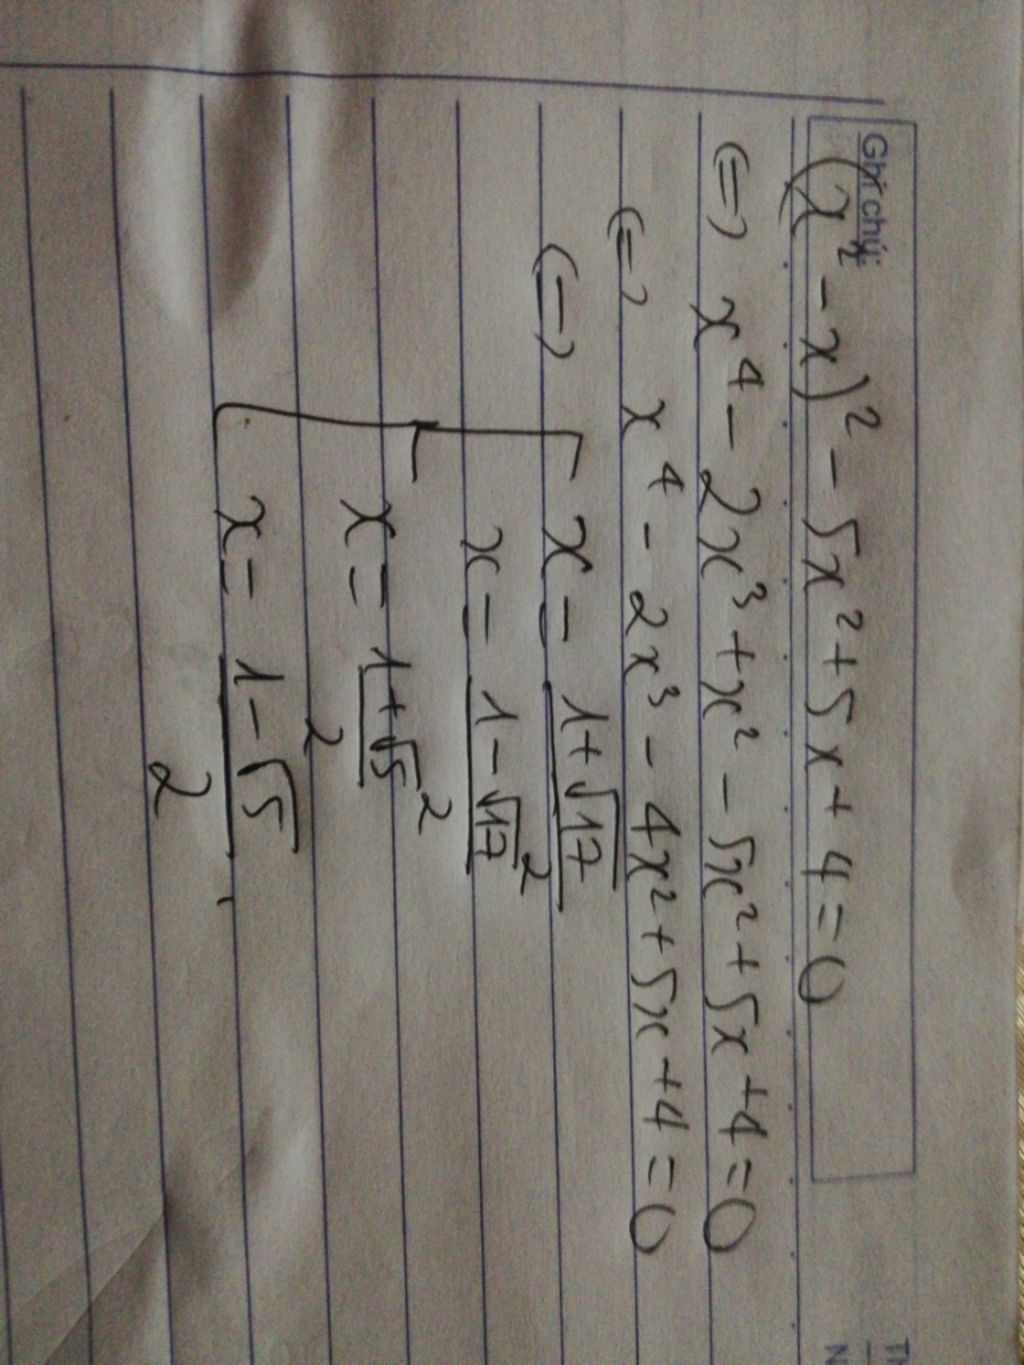 Ghi chú:
(x² - x)² - 5x² + 5x + 4 = 0
(=) x⁴ - 2x³ + x² - 5x² + 5x + 4 = 0
(=) x⁴ - 2x³ - 4x² + 5x + 4 = 0
(=) x = (1+√17)/2
x = (1-√17)/2
x = (1+√5)/2
x = (1-√5)/2